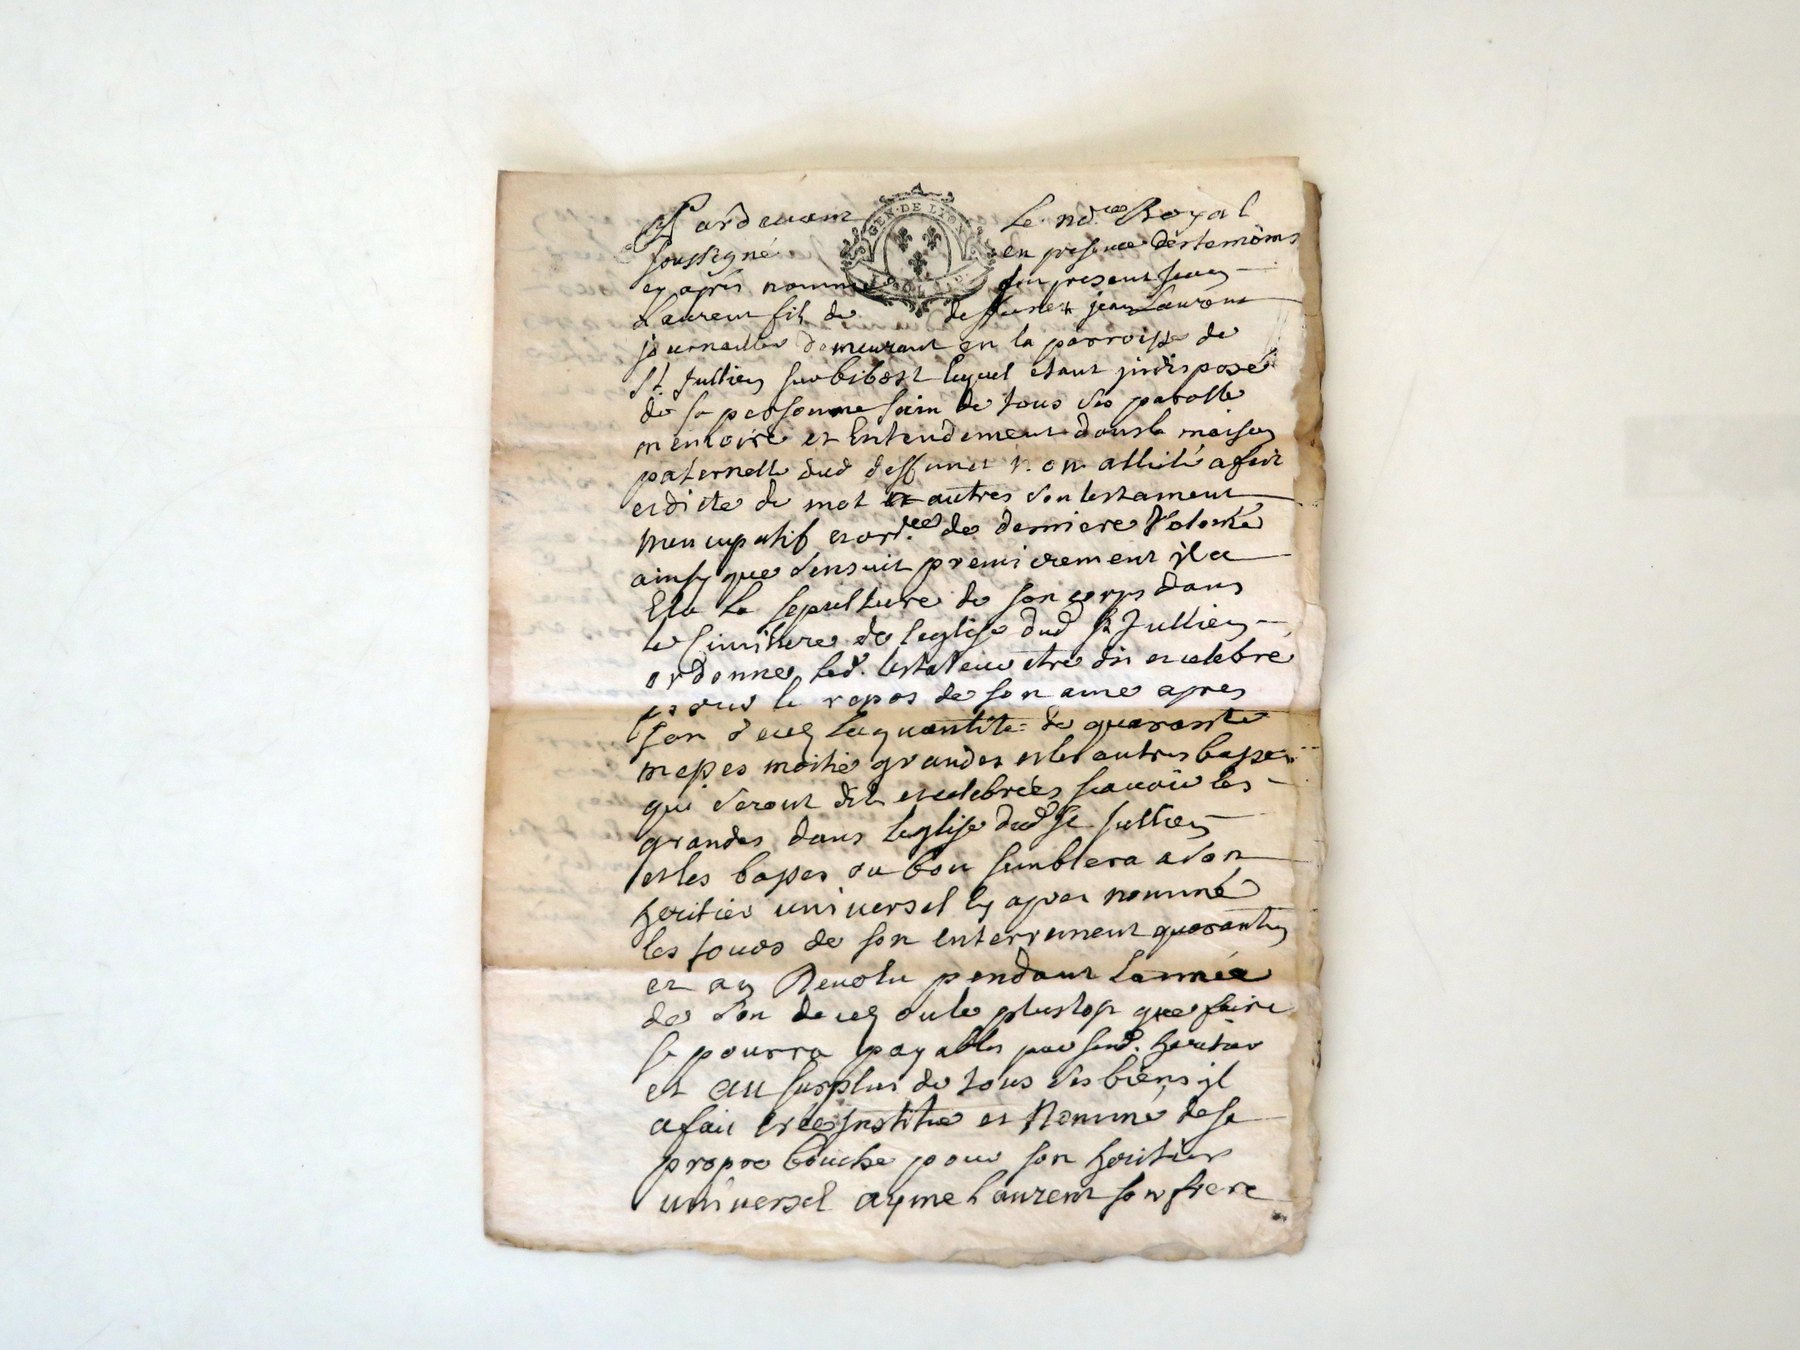 GEN·DE LYON
Pardevant Le no.re Royal
soussigné en presence des temoins
cy après nommés fut present Jean
Laurent fils de deffunct jean Laurent
journallier demeurant en la parroisse de
St. Jullien sur bibost lequel etant jndisposé
de sa personne sain de tous ses parolle
memoire et Entendement dans la maison
paternelle dud deffunct a fait
et dicte de mot autres son testament
Nuncupatif et ord.ce de derniere Volonté
ainsy que sensuit premierement jl a
Elu la sepulture de son corps dans
le Simittiere de leglise dud St Jullien
ordonne led. testateur etre dit et celebré
pour le repos de son ame apres
son decez la quantité de quarante
messes moitié grandes et les autres basses
qui seront dit et celebrées scavoir les
grandes dans leglise dud St Jullien
et les basses ou bon semblera a son
heritier universel cy apres nommé
les jours de son enterrement quarantin
et an Revolu pendant Lannée
de son decez ou le plustost que faire
se pourra payables par sond. heritier
et au surplus de tous ses biens jl
a fait crée jnstitué et Nommé de sa
propre bouche pour son heritier
universel ayme Laurent son frere